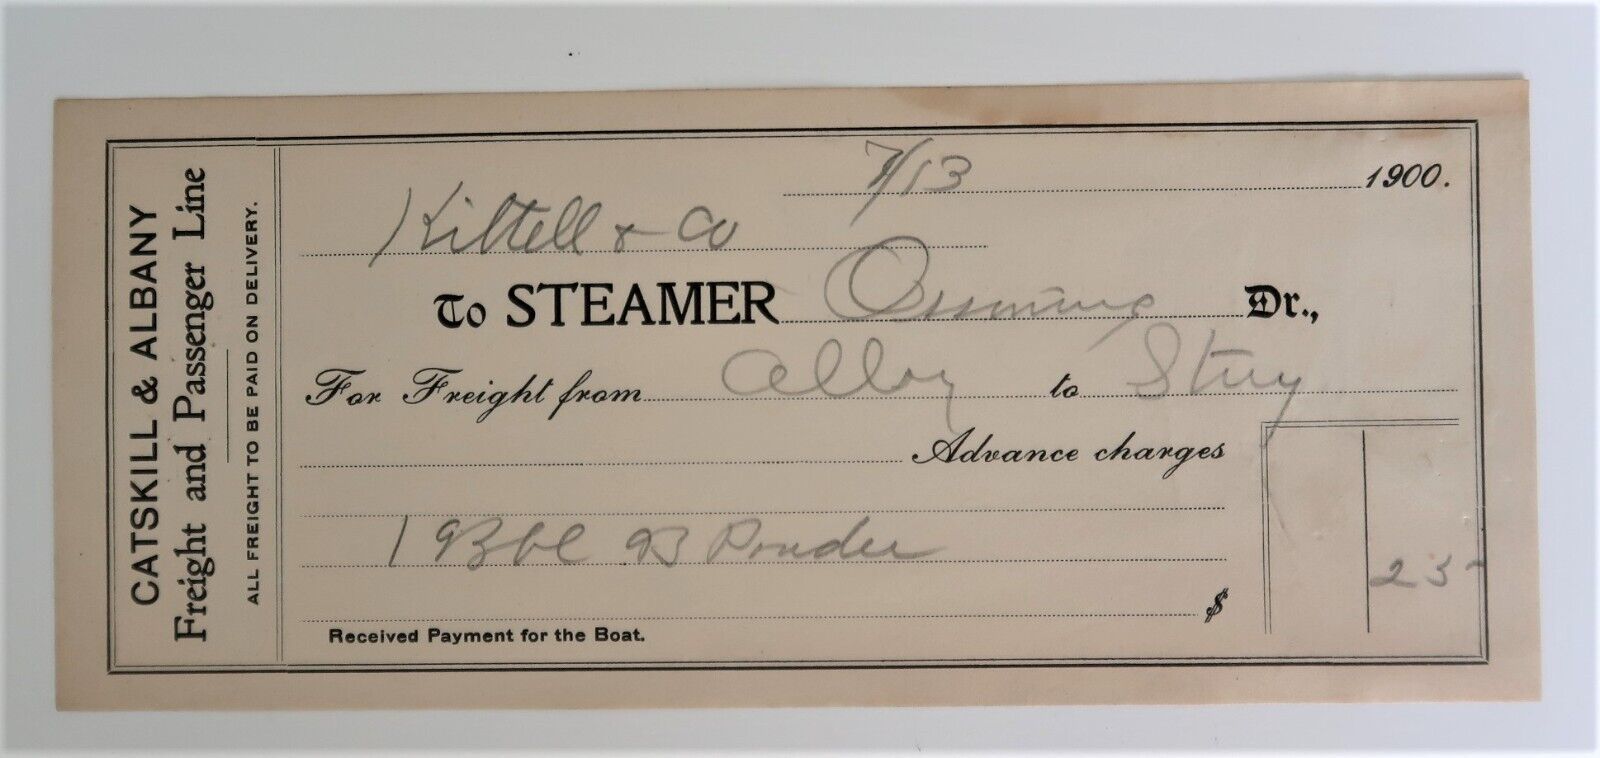 CATSKILL & ALBANY
Freight and Passenger Line
ALL FREIGHT TO BE PAID ON DELIVERY.
7/13 1900.
Kittell & Co
To STEAMER Ossining Dr.,
For Freight from Albay to Stuy
Advance charges
1 Bbl B Powder
25
$
Received Payment for the Boat.